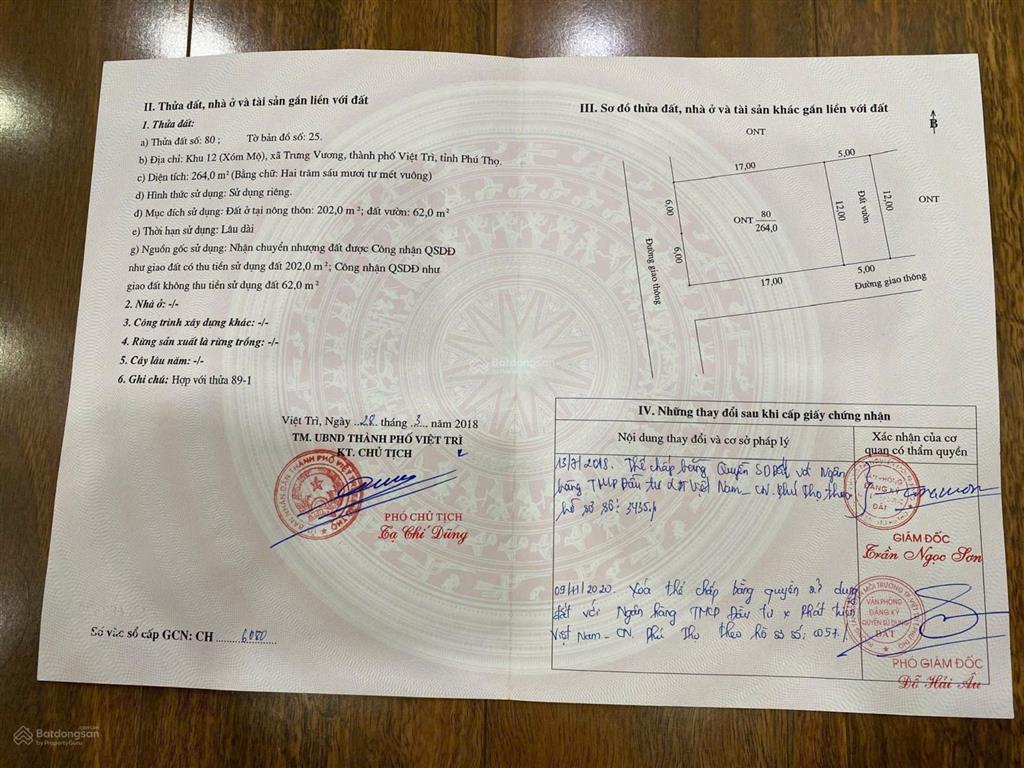 II. Thửa đất, nhà ở và tài sản gắn liền với đất
1. Thửa đất:
a) Thửa đất số: 80 ; Tờ bản đồ số: 25.
b) Địa chỉ: Khu 12 (Xóm Mộ), xã Trưng Vương, thành phố Việt Trì, tỉnh Phú Thọ.
c) Diện tích: 264,0 m² (Bằng chữ: Hai trăm sáu mươi tư mét vuông)
d) Hình thức sử dụng: Sử dụng riêng.
đ) Mục đích sử dụng: Đất ở tại nông thôn: 202,0 m²; đất vườn: 62,0 m²
e) Thời hạn sử dụng: Lâu dài
g) Nguồn gốc sử dụng: Nhận chuyển nhượng đất được Công nhận QSDĐ
như giao đất có thu tiền sử dụng đất 202,0 m²; Công nhận QSDĐ như
giao đất không thu tiền sử dụng đất 62,0 m²
2. Nhà ở: -/-
3. Công trình xây dựng khác: -/-
4. Rừng sản xuất là rừng trồng: -/-
5. Cây lâu năm: -/-
6. Ghi chú: Hợp với thửa 89-1
Việt Trì, Ngày ..28. tháng .3... năm 2018
TM. UBND THÀNH PHỐ VIỆT TRÌ
KT. CHỦ TỊCH
PHÓ CHỦ TỊCH
Tạ Chí Dũng
Số vào sổ cấp GCN: CH 6080
III. Sơ đồ thửa đất, nhà ở và tài sản khác gắn liền với đất
B
ONT
17,00
5,00
6,00
6,00
12,00
12,00
Đất vườn
ONT
ONT 80
264,0
17,00
5,00
Đường giao thông
Đường giao thông
IV. Những thay đổi sau khi cấp giấy chứng nhận
Nội dung thay đổi và cơ sở pháp lý
Xác nhận của cơ
quan có thẩm quyền
13/7/2018. Thế chấp bằng Quyền SDĐất với Ngân
hàng TMCP Đầu tư & PT Việt Nam - CN. Phú Thọ theo
hồ sơ số: 3435./
GIÁM ĐỐC
Trần Ngọc Sơn
09/11/2020. Xóa thế chấp bằng quyền sử dụng
đất với Ngân hàng TMCP Đầu tư & Phát triển
Việt Nam - CN. Phú Thọ theo hồ sơ số: 0057./
VĂN PHÒNG
ĐĂNG KÝ
QUYỀN SỬ DỤNG
ĐẤT
PHÓ GIÁM ĐỐC
Đỗ Hải Âu
Batdongsan
by PropertyGuru
Batdongsan